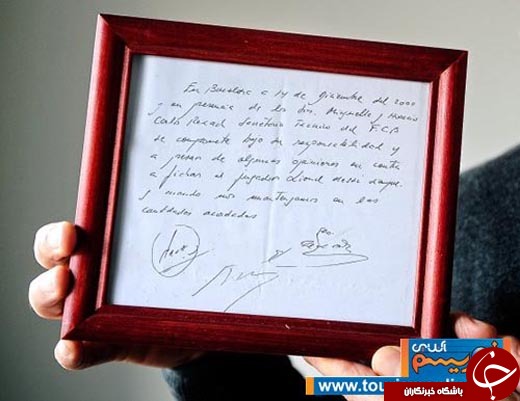 En Barcelona a 14 de Diciembre del 2000
y en presencia de los Srs. Minguella y Horacio
Carlos Rexach Secretario Tecnico del F.C.B
se compromete bajo su responsabilidad y
a pesar de algunas opiniones en contra
a fichar al jugador Lionel Messi siempre
y cuando nos mantengamos en las
cantidades acordadas
توریسم
www.tou
باشگاه خبرنگاران